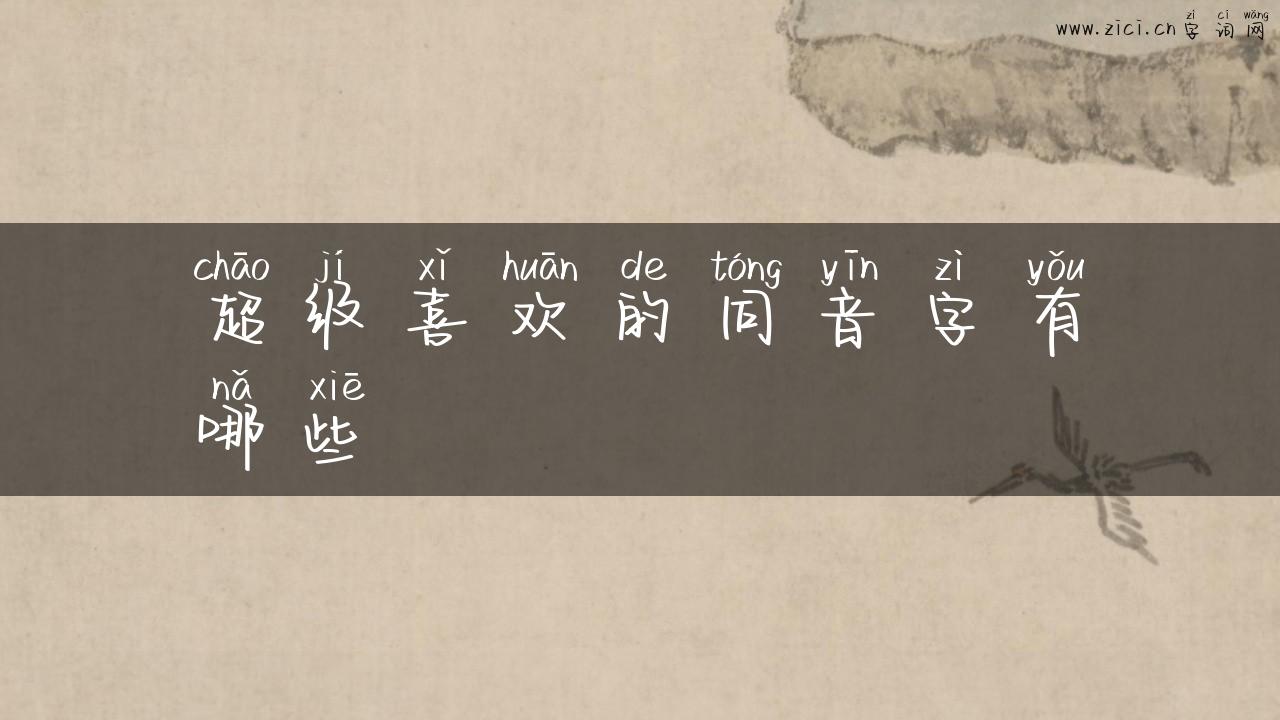 zì cí wǎng
www.zici.cn字词网
chāo jí xǐ huān de tóng yīn zì yǒu
超级喜欢的同音字有
nǎ xiē
哪些